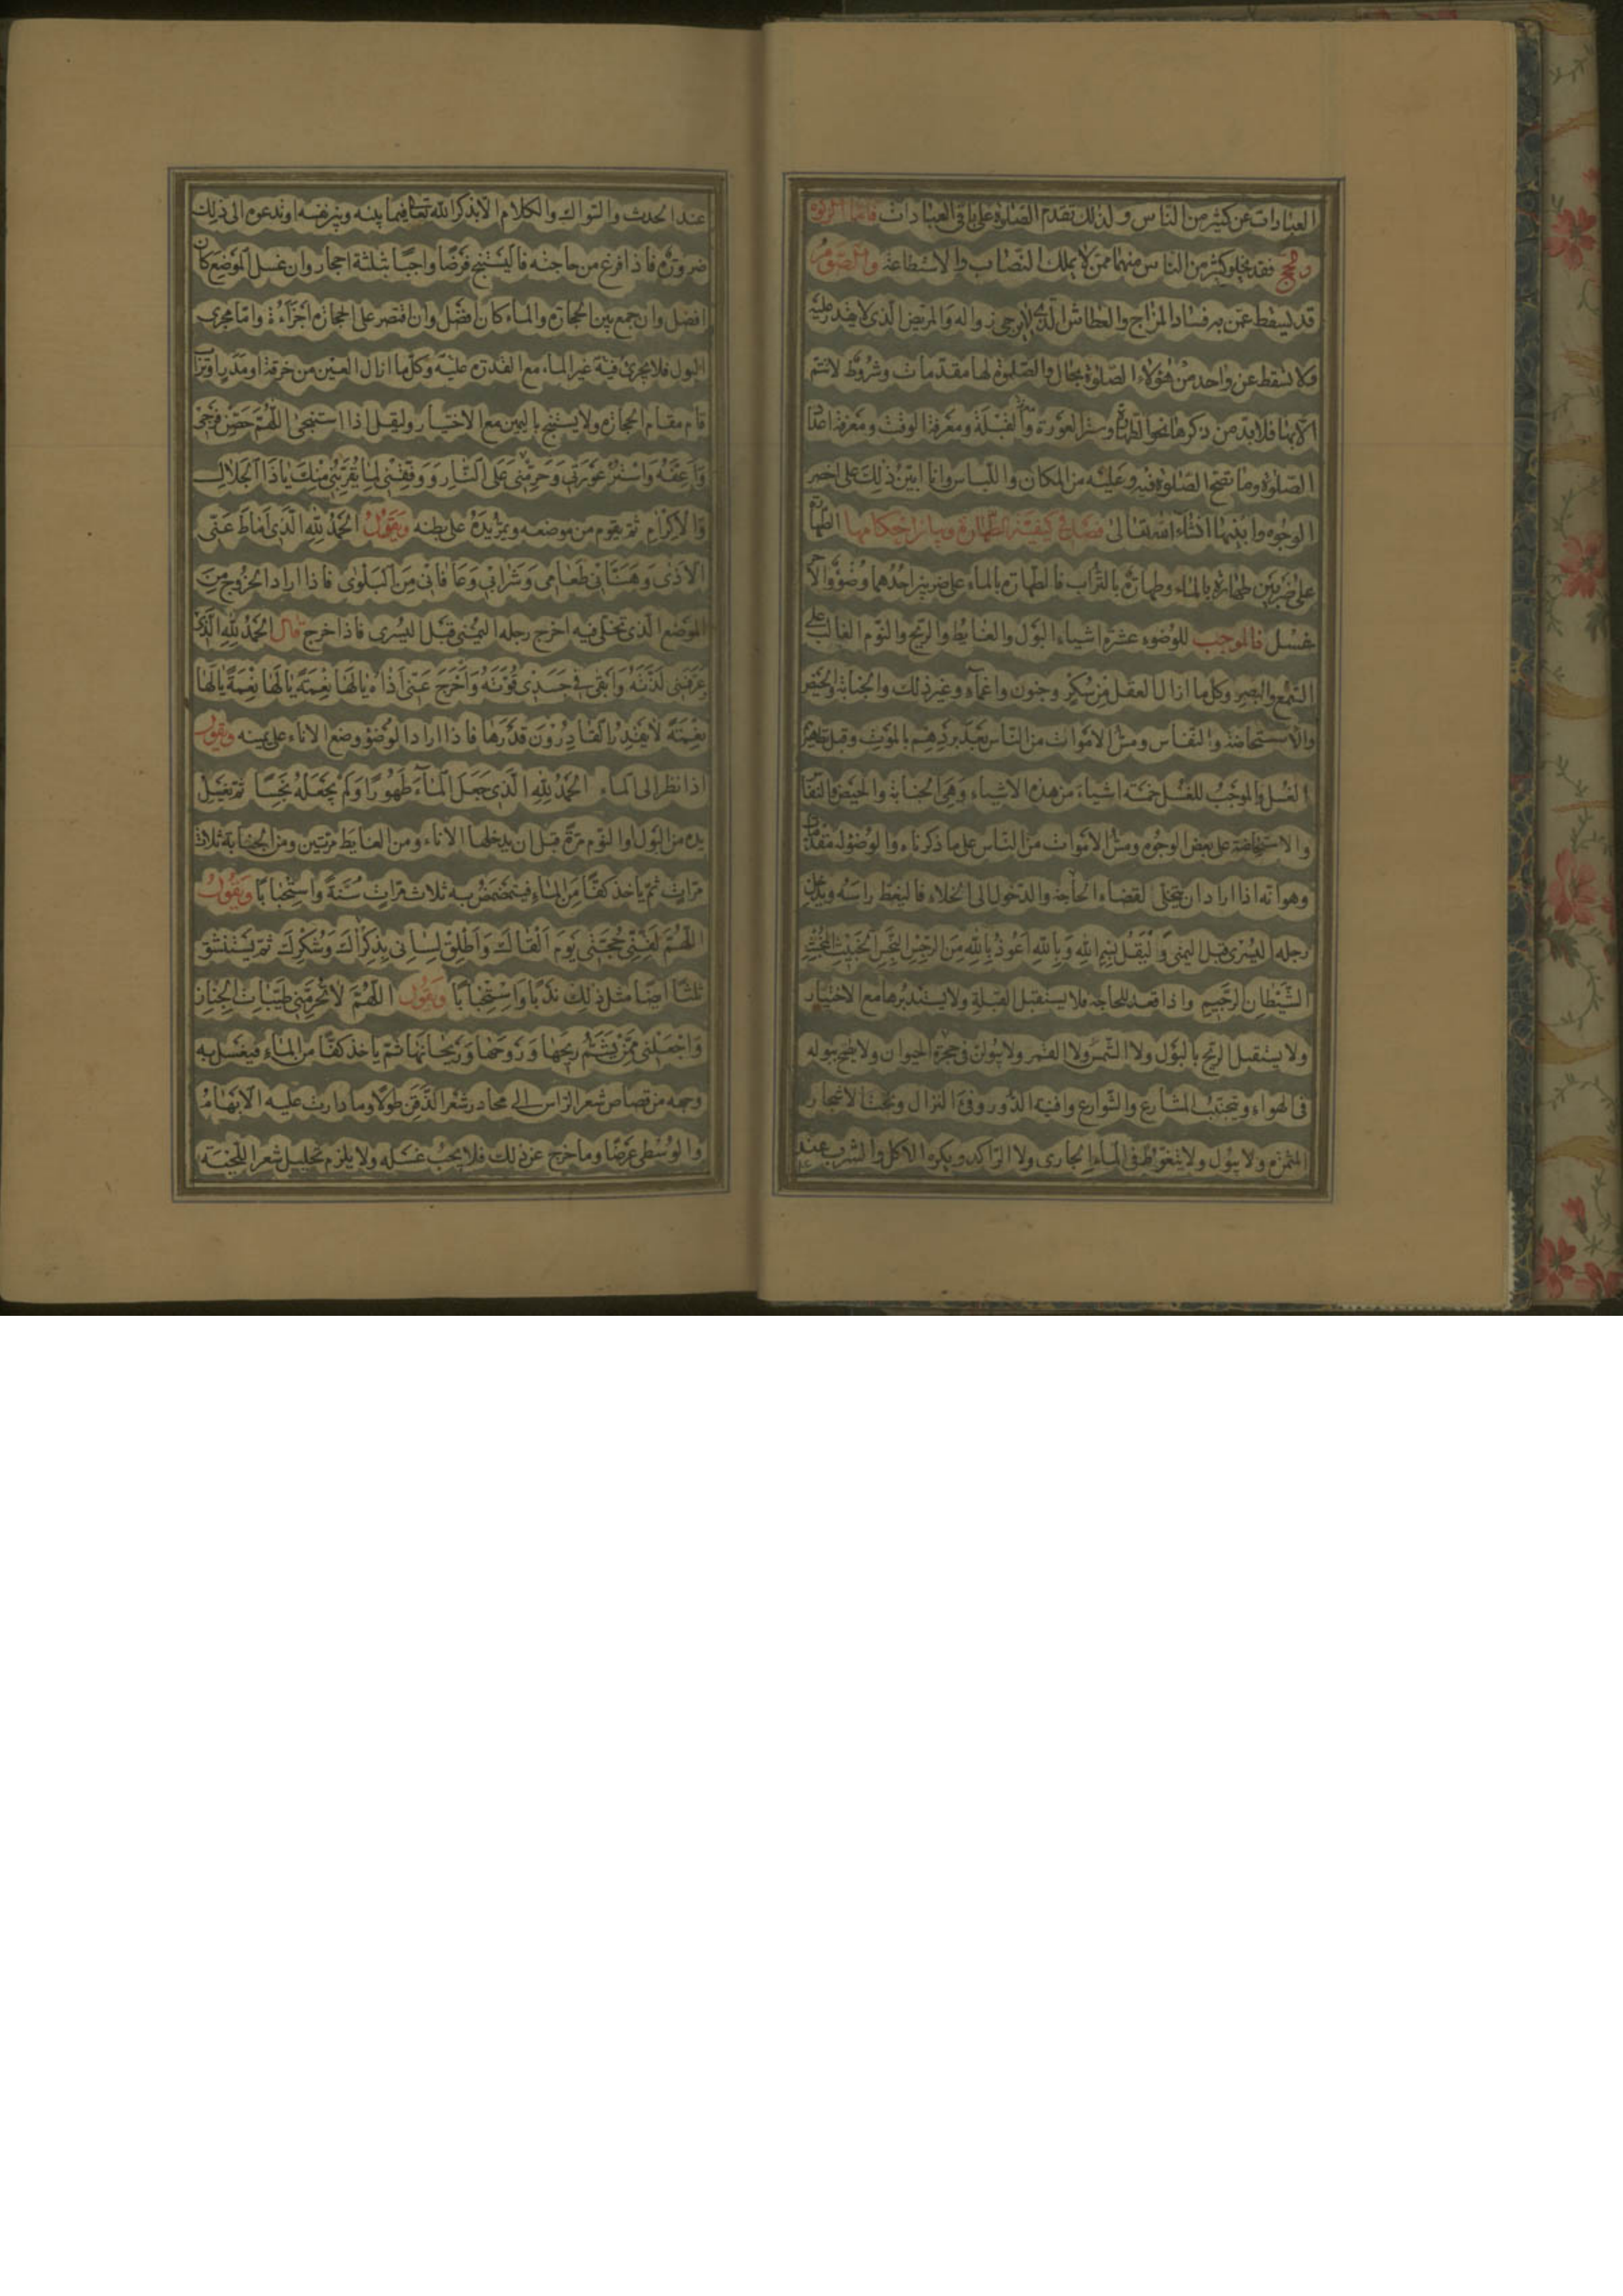 العبادات عن كثير من الناس ولذلك تقدم الصلوة على باقي العبادات فاما الزكوة
والحج فقد يخلو كثير من الناس منهما ممن لا يملك النصاب والاستطاعة واما الصوم
قد يسقط عمن به فساد المزاج والعطاش الذي لا يرجى زواله والمريض الذي لا يقدر عليه
فلا تسقط عن واحد من هؤلاء الصلوة بحال والصلوة لها مقدمات وشروط لا تتم
الا بها فلا بد من ذكرها نحو الطهارة وستر العورة والقبلة ومعرفة الوقت ومعرفة اعداد
الصلوة وما تصح الصلوة فيه وعليه من المكان واللباس وانا ابين ذلك على اخصر
الوجوه وابينها انشاء الله تعالى فصل في كيفية الطهارة وبيان احكامها الطهارة
على ضربين طهارة بالماء وطهارة بالتراب فالطهارة بالماء على ضربين احدهما وضوء والاخر
غسل فالموجب للوضوء عشرة اشياء البول والغايط والريح والنوم الغالب على
السمع والبصر وكل ما ازال العقل من سكر وجنون واغماء وغير ذلك والجنابة والحيض
والاستحاضة والنفاس ومس الاموات من الناس بعد بردهم بالموت وقبل تطهيرهم
الغسل والموجب للغسل خمسة اشياء من هذه الاشياء وهي الجنابة والحيض والنفاس
والاستحاضة على بعض الوجوه ومس الاموات من الناس على ما ذكرناه والوضوء له مقدمات
وهو انه اذا اراد ان يتخلى لقضاء الحاجة والدخول الى الخلاء فاليغط راسه ويدخل
رجله اليسرى قبل اليمنى وليقل بسم الله وبالله اعوذ بالله من الرجس النجس الخبيث المخبث
الشيطان الرجيم واذا قعد للحاجة فلا يستقبل القبلة ولا يستدبرها مع الاختيار
ولا يستقبل الريح بالبول ولا الشمس ولا القمر ولا يبولن في جحرة الحيوان ولا يطمح ببوله
في الهواء ويتجنب المشارع والشوارع وافنية الدور وفيء النزال وتحت الاشجار
المثمرة ولا يبول ولا يتغوط في الماء الجاري ولا الراكد ويكره الاكل والشرب عند
عند الحدث والسواك والكلام الا بذكر الله تعالى فيما بينه وبين نفسه او تدعوه الى ذلك
ضرورة فاذا فرغ من حاجته فاليستنج فرضا واجبا بثلثة احجار وان غسل الموضع كان
افضل وان جمع بين الحجارة والماء كان افضل وان اقتصر على الحجارة اجزاءه واما مجرى
البول فلا يجزي فيه غير الماء مع القدرة عليه وكل ما ازال العين من خرقة او مدر او تراب
قام مقام الحجارة ولا يستنج باليمين مع الاختيار وليقل اذا استنجى اللهم حصن فرجي
واعفه واستر عورتي وحرمني على النار ووفقني لما يقربني منك يا ذا الجلال
والاكرام ثم يقوم من موضعه ويمر يده على بطنه ويقول الحمد لله الذي اماط عني
الاذى وهناني طعامي وشرابي وعافاني من البلوى فاذا اراد الخروج من
الموضع الذي تخلى فيه اخرج رجله اليمنى قبل اليسرى فاذا خرج قال الحمد لله الذي
عرفني لذته وابقى في جسدي قوته واخرج عني اذاه يا لها نعمة يا لها نعمة يا لها
نعمة لا يقدر القادرون قدرها فاذا اراد الوضوء وضع الاناء على يمينه ويقول
اذا نظر الى الماء الحمد لله الذي جعل الماء طهورا ولم يجعله نجسا ثم يغسل
يده من البول او النوم مرة قبل ان يدخلها الاناء ومن الغايط مرتين ومن الجنابة ثلاث
مرات ثم ياخذ كفا من الماء فيتمضمض به ثلاث مرات سنة واستحبابا ويقول
اللهم لقني حجتي يوم القاك واطلق لساني بذكراك وشكرك ثم يستنشق
ثلثا ايضا مثل ذلك ندبا واستحبابا ويقول اللهم لا تحرمني طيبات الجنان
واجعلني ممن يشتم ريحها وروحها وريحانها ثم ياخذ كفا من الماء فيغسل به
وجهه من قصاص شعر الراس الى محادر شعر الذقن طولا وما دارت عليه الابهام
والوسطى عرضا وما خرج عن ذلك فلا يجب غسله ولا يلزم تخليل شعر اللحية